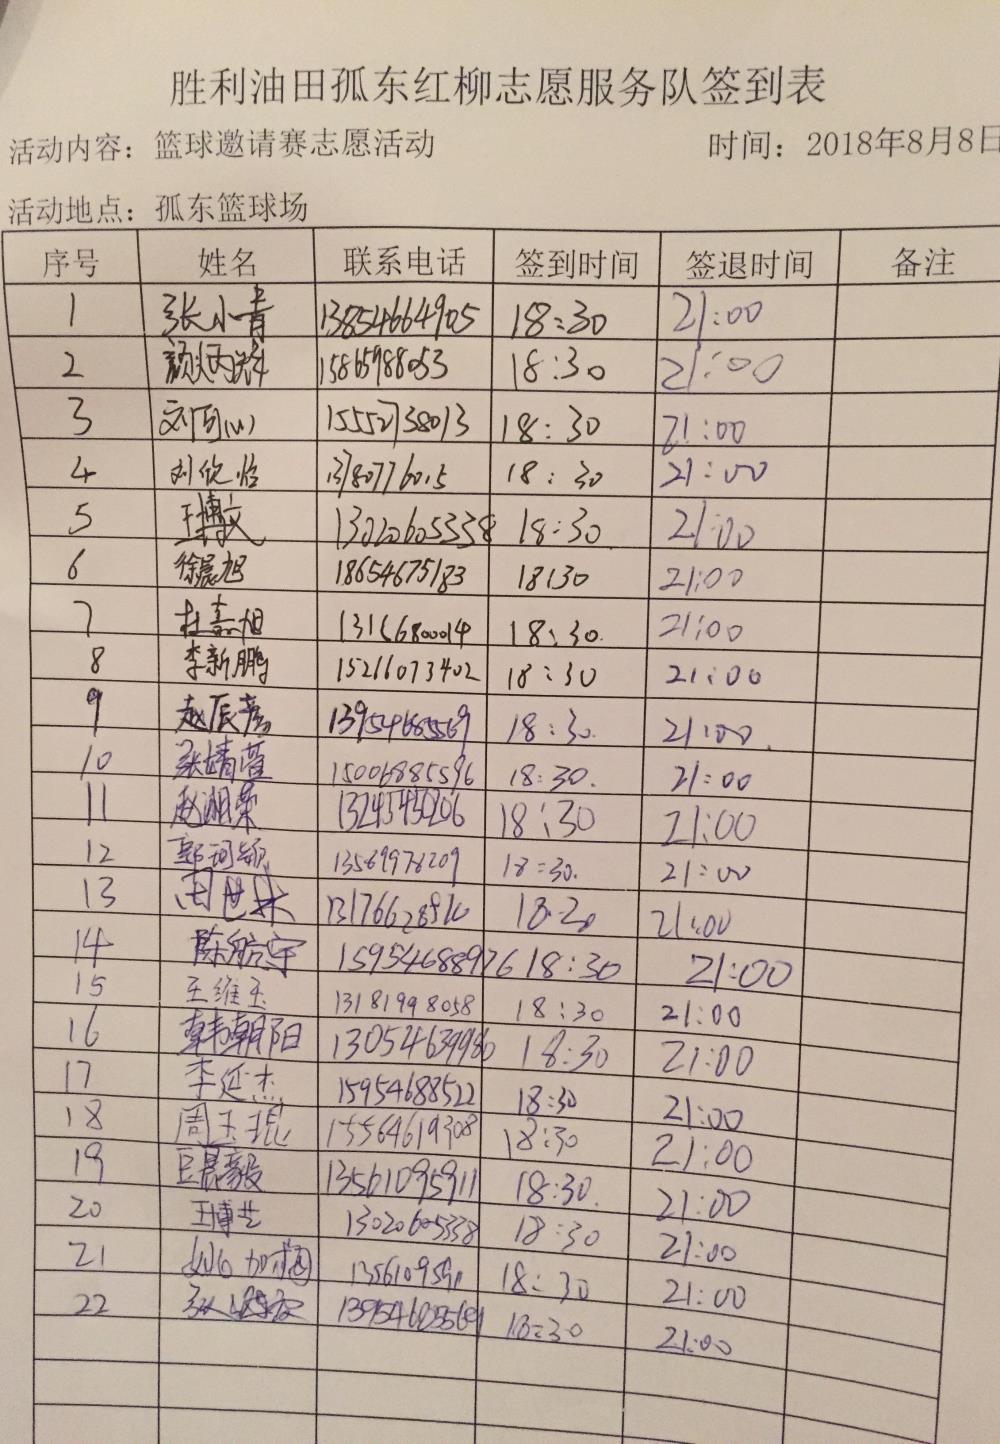 胜利油田孤东红柳志愿服务队签到表
活动内容：篮球邀请赛志愿活动 时间：2018年8月8日
活动地点：孤东篮球场
序号 姓名 联系电话 签到时间 签退时间 备注
1 张小青 13854664905 18:30 21:00
2 颜炳辉 15865988053 18:30 21:00
3 15552738013 18:30 21:00
4 刘欣怡 18:30 21:00
5 王博文 13020605338 18:30 21:00
6 徐晨旭 18654675183 18:30 21:00
7 杜嘉旭 18:30. 21:00
8 李新鹏 15216073402 18:30 21:00
9 赵辰彦 13954665569 18:30. 21:00.
10 张婧萱 15006885596 18:30. 21:00
11 赵湘荣 18:30 21:00
12 郭珂颖 18:30. 21:00
13 周世林 21:00
14 陈航宇 15954688976 18:30 21:00
15 王维玉 13181998058 18:30 21:00
16 韩朝阳 13054639980 18:30 21:00
17 李延杰 15954688522 18:30 21:00
18 周玉琨 15564619308 18:30 21:00
19 巨晨毅 13561095911 18:30. 21:00
20 王博艺 13020605338 18:30 21:00
21 18:30 21:00
22 18:30 21:00